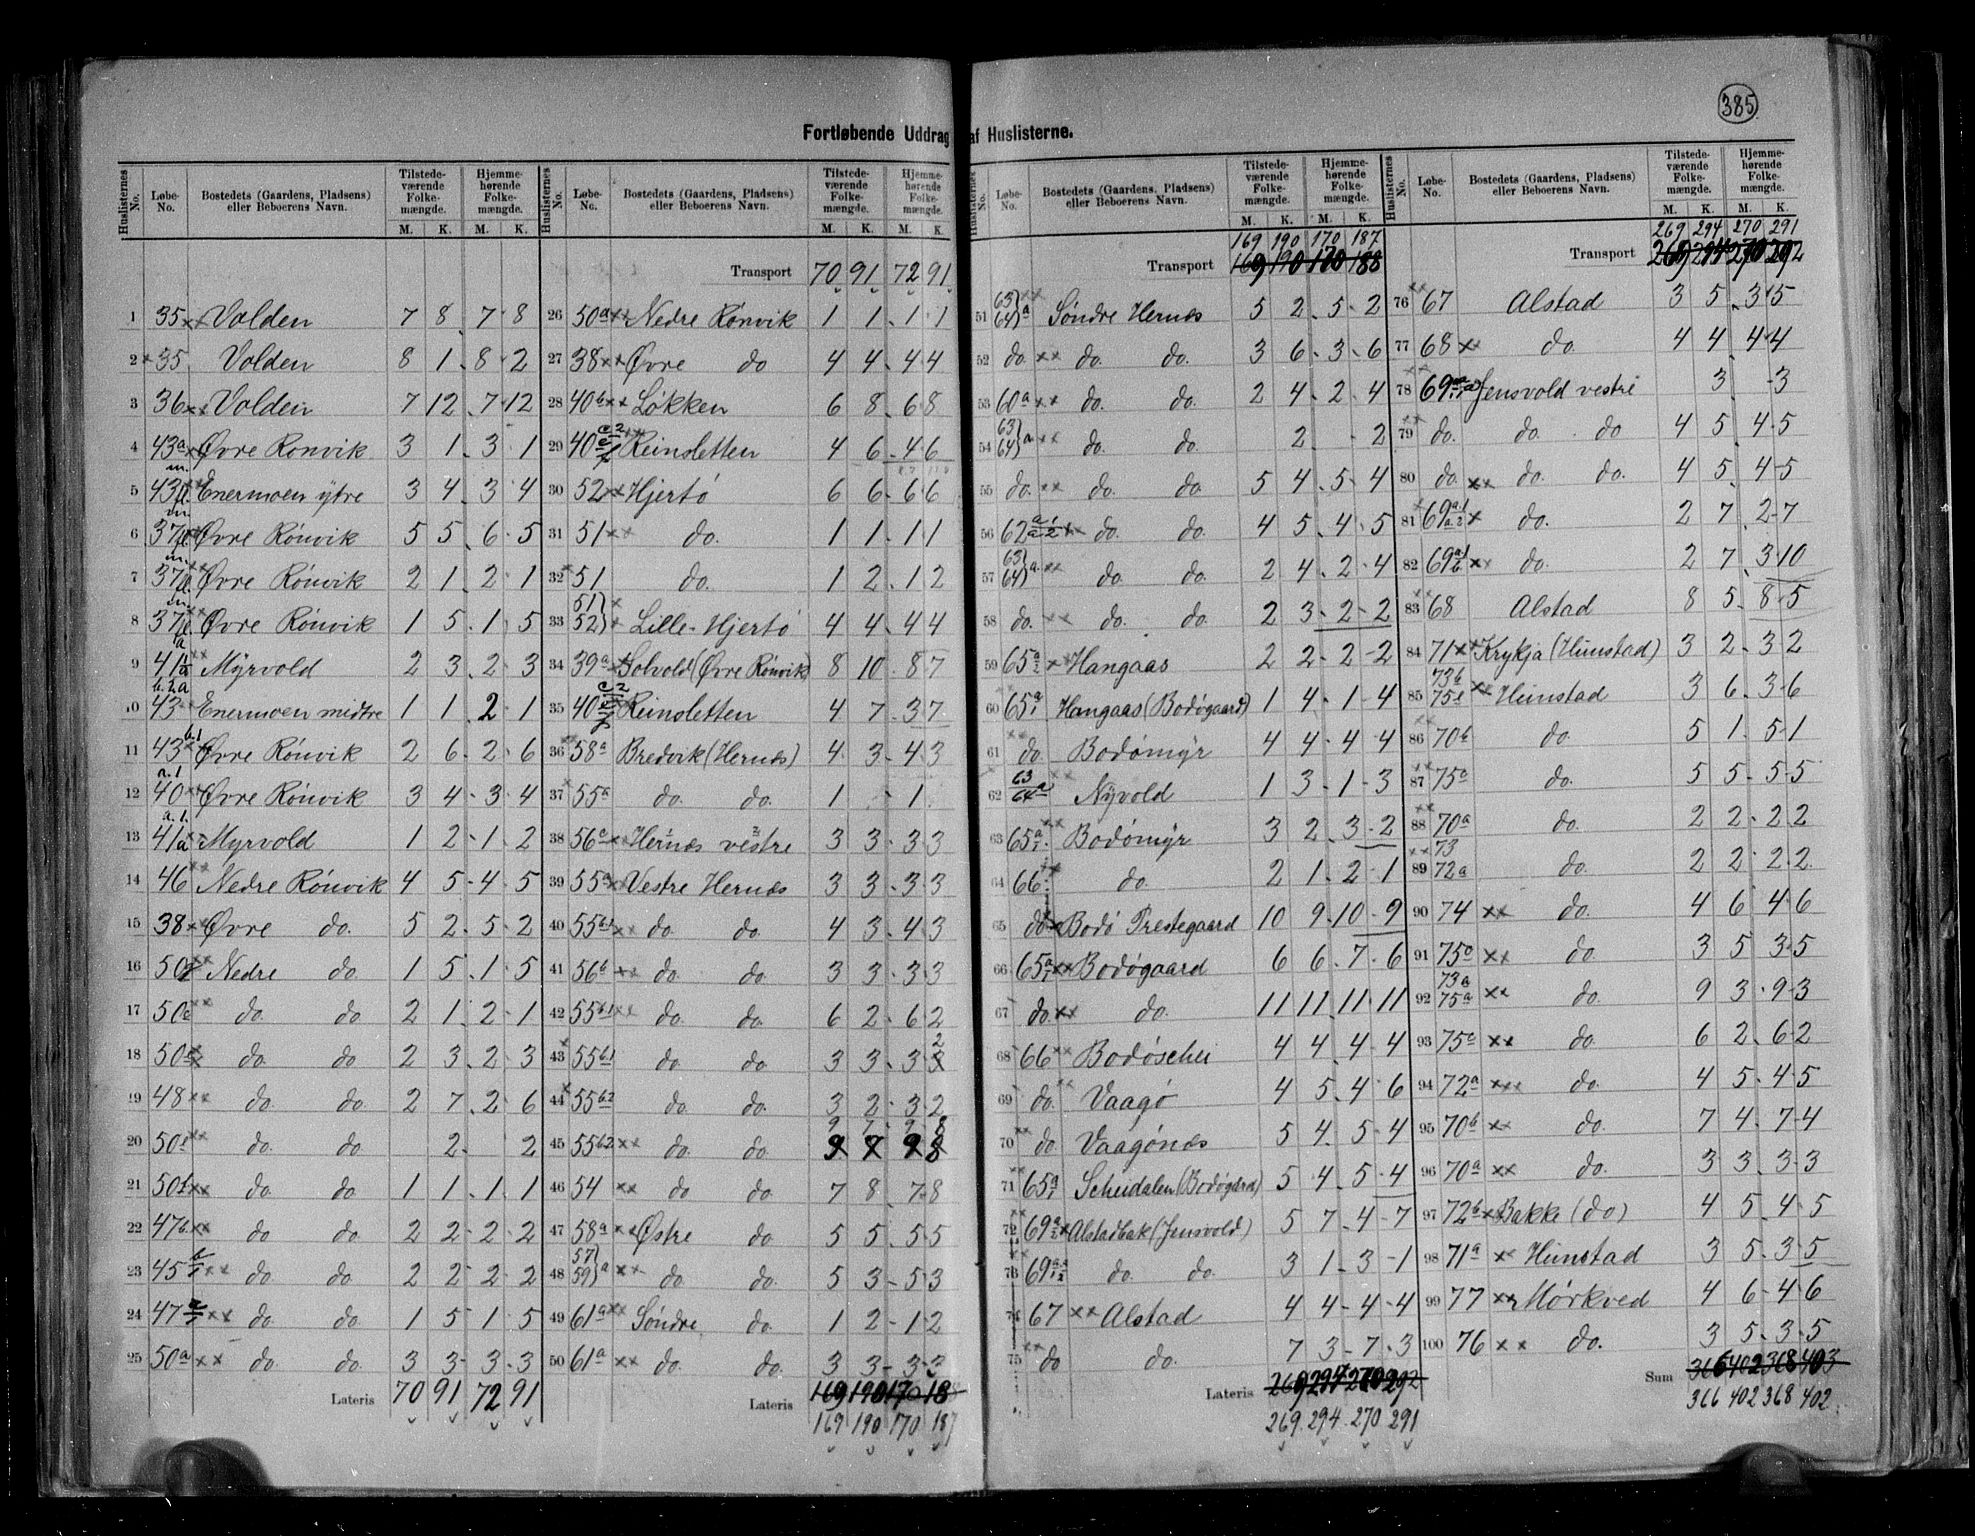 385
Fortløbende Uddrag af Huslisterne.
Huslisternes No. Løbe-No. Bostedets (Gaardens, Pladsens) eller Beboerens Navn. Tilstede-værende Folke-mængde. M. K. Hjemme-hørende Folke-mængde. M. K.
Transport
1 35 Volden 7 8 7 8
2 35 Volden 8 1 8 2
3 36 Volden 7 12 7 12
4 43a Øvre Rønvik 3 1 3 1
5 43 Enermoen ytre 3 4 3 4
6 37 Øvre Rønvik 5 5 6 5
7 37 Øvre Rønvik 2 1 2 1
8 37 Øvre Rønvik 1 5 1 5
9 41 Myrvold 2 3 2 3
10 43 Enermoen midtre 1 1 2 1
11 43 b.1 Øvre Rønvik 2 6 2 6
12 40 a.1 Øvre Rønvik 3 4 3 4
13 41a a.1. Myrvold 1 2 1 2
14 46 Nedre Rønvik 4 5 4 5
15 38 Øvre do. 5 2 5 2
16 50 Nedre do 1 5 1 5
17 50 do. do 2 1 2 1
18 50 do do 2 3 2 3
19 48 do. do. 2 7 2 6
20 50 do do 2 2
21 50 do. do 1 1 1 1
22 47b do do 2 2 2 2
23 45 do do 2 2 2 2
24 47 do do. 1 5 1 5
25 50a do do. 3 3 3 3
Lateris 70 91 72 91
Huslisternes No. Løbe-No. Bostedets (Gaardens, Pladsens) eller Beboerens Navn. Tilstede-værende Folke-mængde. M. K. Hjemme-hørende Folke-mængde. M. K.
Transport 70 91 72 91
26 50a Nedre Rønvik 1 1 1 1
27 38 Øvre do 4 4 4 4
28 40b Løkken 6 8 6 8
29 40 Reinsletten 4 6 4 6
30 52 Hjertø 6 6 6 6
31 51 do. 1 1 1 1
32 51 do. 1 2 1 2
33 51 52 Lille-Hjertø 4 4 4 4
34 39a Solvold (Øvre Rønvik) 8 10 8 7
35 40 Reinsletten 4 7 3 7
36 58a Bredvik (Hernæs) 4 3 4 3
37 55a do do. 1 1
38 56a Hernæs vestre 3 3 3 3
39 55a Vestre Hernæs 3 3 3 3
40 55b.1 do do. 4 3 4 3
41 56b do do. 3 3 3 3
42 55b.1 do. do. 6 2 6 2
43 55b.1 do do. 3 3 3 2
44 55b.2 do do. 3 2 3 2
45 55b.2 do do. 9 7 9 8
46 54 do do 7 8 7 8
47 58a Østre do 5 5 5 5
48 57 59 a do do. 5 3 5 3
49 61a Søndre do. 1 2 1 2
50 61a do. do. 3 3 3 3
Lateris 169 190 170 18
169 190 170 187
Huslisternes No. Løbe-No. Bostedets (Gaardens, Pladsens) eller Beboerens Navn. Tilstede-værende Folke-mængde. M. K. Hjemme-hørende Folke-mængde. M. K.
169 190 170 187
Transport 169 190 170 188
51 63 64 a Søndre Hernæs 5 2 5 2
52 do. do. do. 3 6 3 6
53 60a do. do. 2 4 2 4
54 63 64 a do. do. 2 2
55 do. do. do 5 4 5 4
56 62 a.1 a.2 do do 4 5 4 5
57 63 64 a. do do. 2 4 2 4
58 do. do do 2 3 2 2
59 65 a 2 Hangaas 2 2 2 2
60 65 a 1 Hangaas (Bodøgaard) 1 4 1 4
61 do. Bodømyr 4 4 4 4
62 63 64a Nyvold 1 3 1 3
63 65 a 1 Bodømyr 3 2 3 2
64 66 do. 2 1 2 1
65 do Bodø Prestegaard 10 9 10 9
66 65 a 1 Bodøgaard 6 6 7 6
67 do. do. 11 11 11 11
68 66 Bodøschei 4 4 4 4
69 do. Vaagø 4 5 4 6
70 do Vaagønæs 5 4 5 4
71 65 a 1 Scheidalen (Bodøgård) 5 4 5 4
72 69 a 2 Alstadbak (Jensvold) 5 7 4 7
73 69 do. do. 3 1 3 1
74 67 Alstad 4 4 4 4
75 do do. 7 3 7 3
Lateris 269 294 270 292
269. 294. 270 291
Huslisternes No. Løbe-No. Bostedets (Gaardens, Pladsens) eller Beboerens Navn. Tilstede-værende Folke-mængde. M. K. Hjemme-hørende Folke-mængde. M. K.
269 294 270 291
Transport 269 294 270 292
76 67 Alstad 3 5 3 5
77 68 do. 4 4 4 4
78 69 Jensvold vestre 3 3
79 do. do. do 4 5 4 5
80 do. do. do. 4 5 4 5
81 69 a.1 a.2 do. 2 7 2 7
82 69 a.1 b do. 2 7 3 10
83 68 Alstad 8 5 8 5
84 71 Krykja (Hunstad) 3 2 3 2
85 73b 75e Hunstad 3 6 3 6
86 70b do. 5 1 5 1
87 75a do. 5 5 5 5
88 70a do. 2 2 2 2
89 73 72a do. 2 2 2 2
90 74 do. 4 6 4 6
91 75 do. 3 5 3 5
92 73a 75a do. 9 3 9 3
93 75a do. 6 2 6 2
94 72a do. 4 5 4 5
95 70b do. 7 4 7 4
96 70a do. 3 3 3 3
97 72b Bakke (do) 4 5 4 5
98 71a Hunstad 3 5 3 5
99 77 Mørkved 4 6 4 6
100 76 do. 3 5 3 5
Sum 366 402 368 403
366 402 368 402